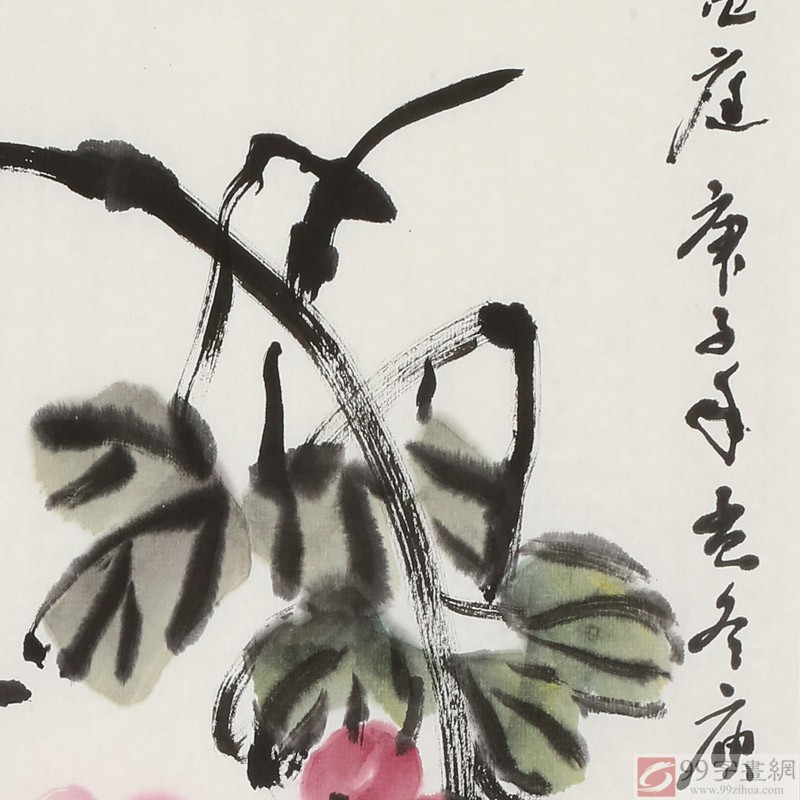 庭 庚子年孟冬
99字畫網
www.99zihua.com